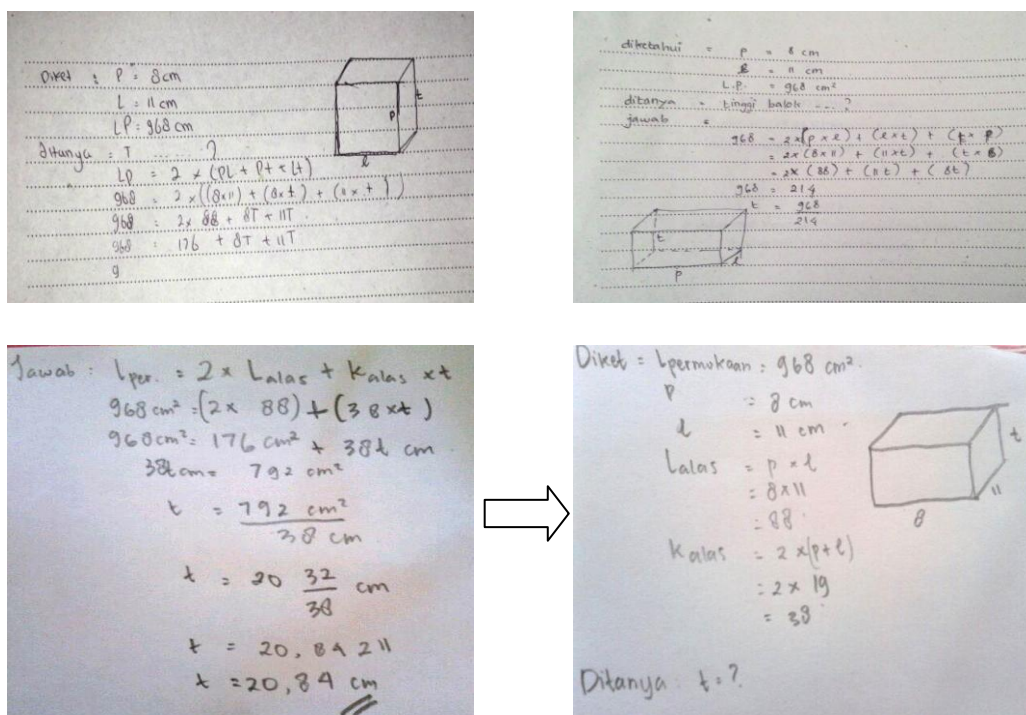 Diket : P = 8 cm
L = 11 cm
LP = 968 cm
ditanya = T ........ ?
LP = 2 x (PL + Pt + Lt)
968 = 2 x ((8x11) + (8xt) + (11xt))
968 = 2x 88 + 8T + 11T
968 = 176 + 8T + 11T
9
t
P
l
diketahui = p = 8 cm
l = 11 cm
L.P. = 968 cm²
ditanya = tinggi balok ....?
jawab =
968 = 2x(p x l) + (l x t) + (t x p)
= 2x (8x11) + (11xt) + (t x 8)
= 2x (88) + (11t) + (8t)
968 = 214
t = 968
214
t
p
l
Jawab : Lper. = 2 x Lalas + Kalas xt
968 cm² = (2 x 88) + (38 xt)
968 cm² = 176 cm² + 38t cm
38t cm = 792 cm²
t = 792 cm²
38 cm
t = 20 32/38 cm
t = 20,84211
t = 20,84 cm
Diket = Lpermukaan = 968 cm².
P = 8 cm
l = 11 cm
Lalas = p x l
= 8x11
= 88
Kalas = 2 x(p+l)
= 2 x 19
= 38
t
11
8
Ditanya : t = ?